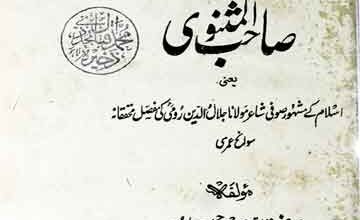 صاحب المثنوی
یعنی
اسلام کے مشہور صوفی شاعر مولانا جلال الدین رومیؒ کی مفصل محققانہ
سوانح عمری
مؤلفہ